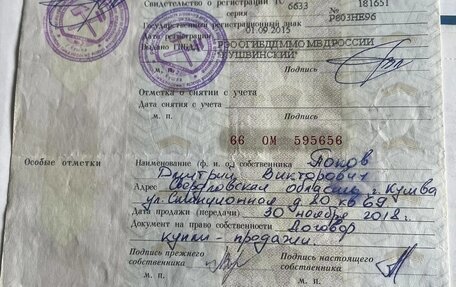 Свидетельство о регистрации ТС 6633 181651
серия
Государственный регистрационный знак Р803НЕ96
Дата регистрации 01.09.2015
Выдано ГИБДД РЭО ОГИБДД ММО МВД РОССИИ
"КУШВИНСКИЙ"
М. П. Подпись
Отметка о снятии с учета
Дата снятия с учета
М. П. Подпись
66 ОМ 595656
Особые отметки
Наименование (ф. и. о.) собственника Попов
Дмитрий Викторович
Адрес Свердловская область г. Кушва
ул. Станционная д 80 кв 69
Дата продажи (передачи) 30 ноября 2018г.
Документ на право собственности Договор
купли - продажи.
Подпись прежнего собственника
Подпись настоящего собственника
М. П. М. П.